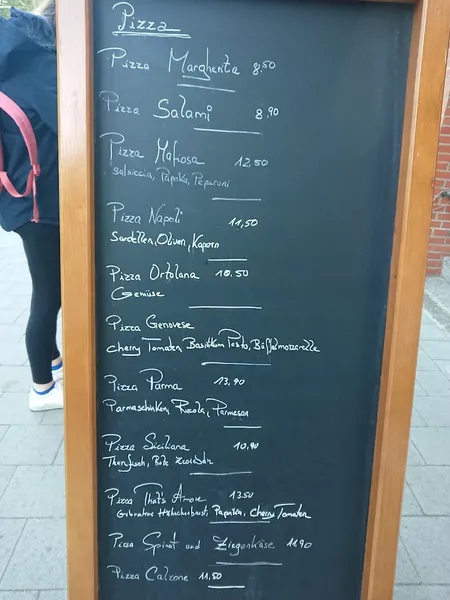 Pizza
Pizza Margherita 8.50
Pizza Salami 8,90
Pizza Mafiosa 12,50
Salsiccia, Paprika, Peperoni
Pizza Napoli 11,50
Sardellen, Oliven, Kapern
Pizza Ortolana 10.50
Gemüse
Pizza Genovese
Cherry Tomaten, Basilikum Pesto, Büffelmozzarella
Pizza Parma 13,90
Parmaschinken, Rucola, Parmesan
Pizza Siciliana 10,90
Thunfisch, Rote Zwiebeln
Pizza That's Amore 13.50
Gebratene Hähnchenbrust, Paprika, Cherry Tomaten
Pizza Spinat und Ziegenkäse 11.90
Pizza Calzone 11,50